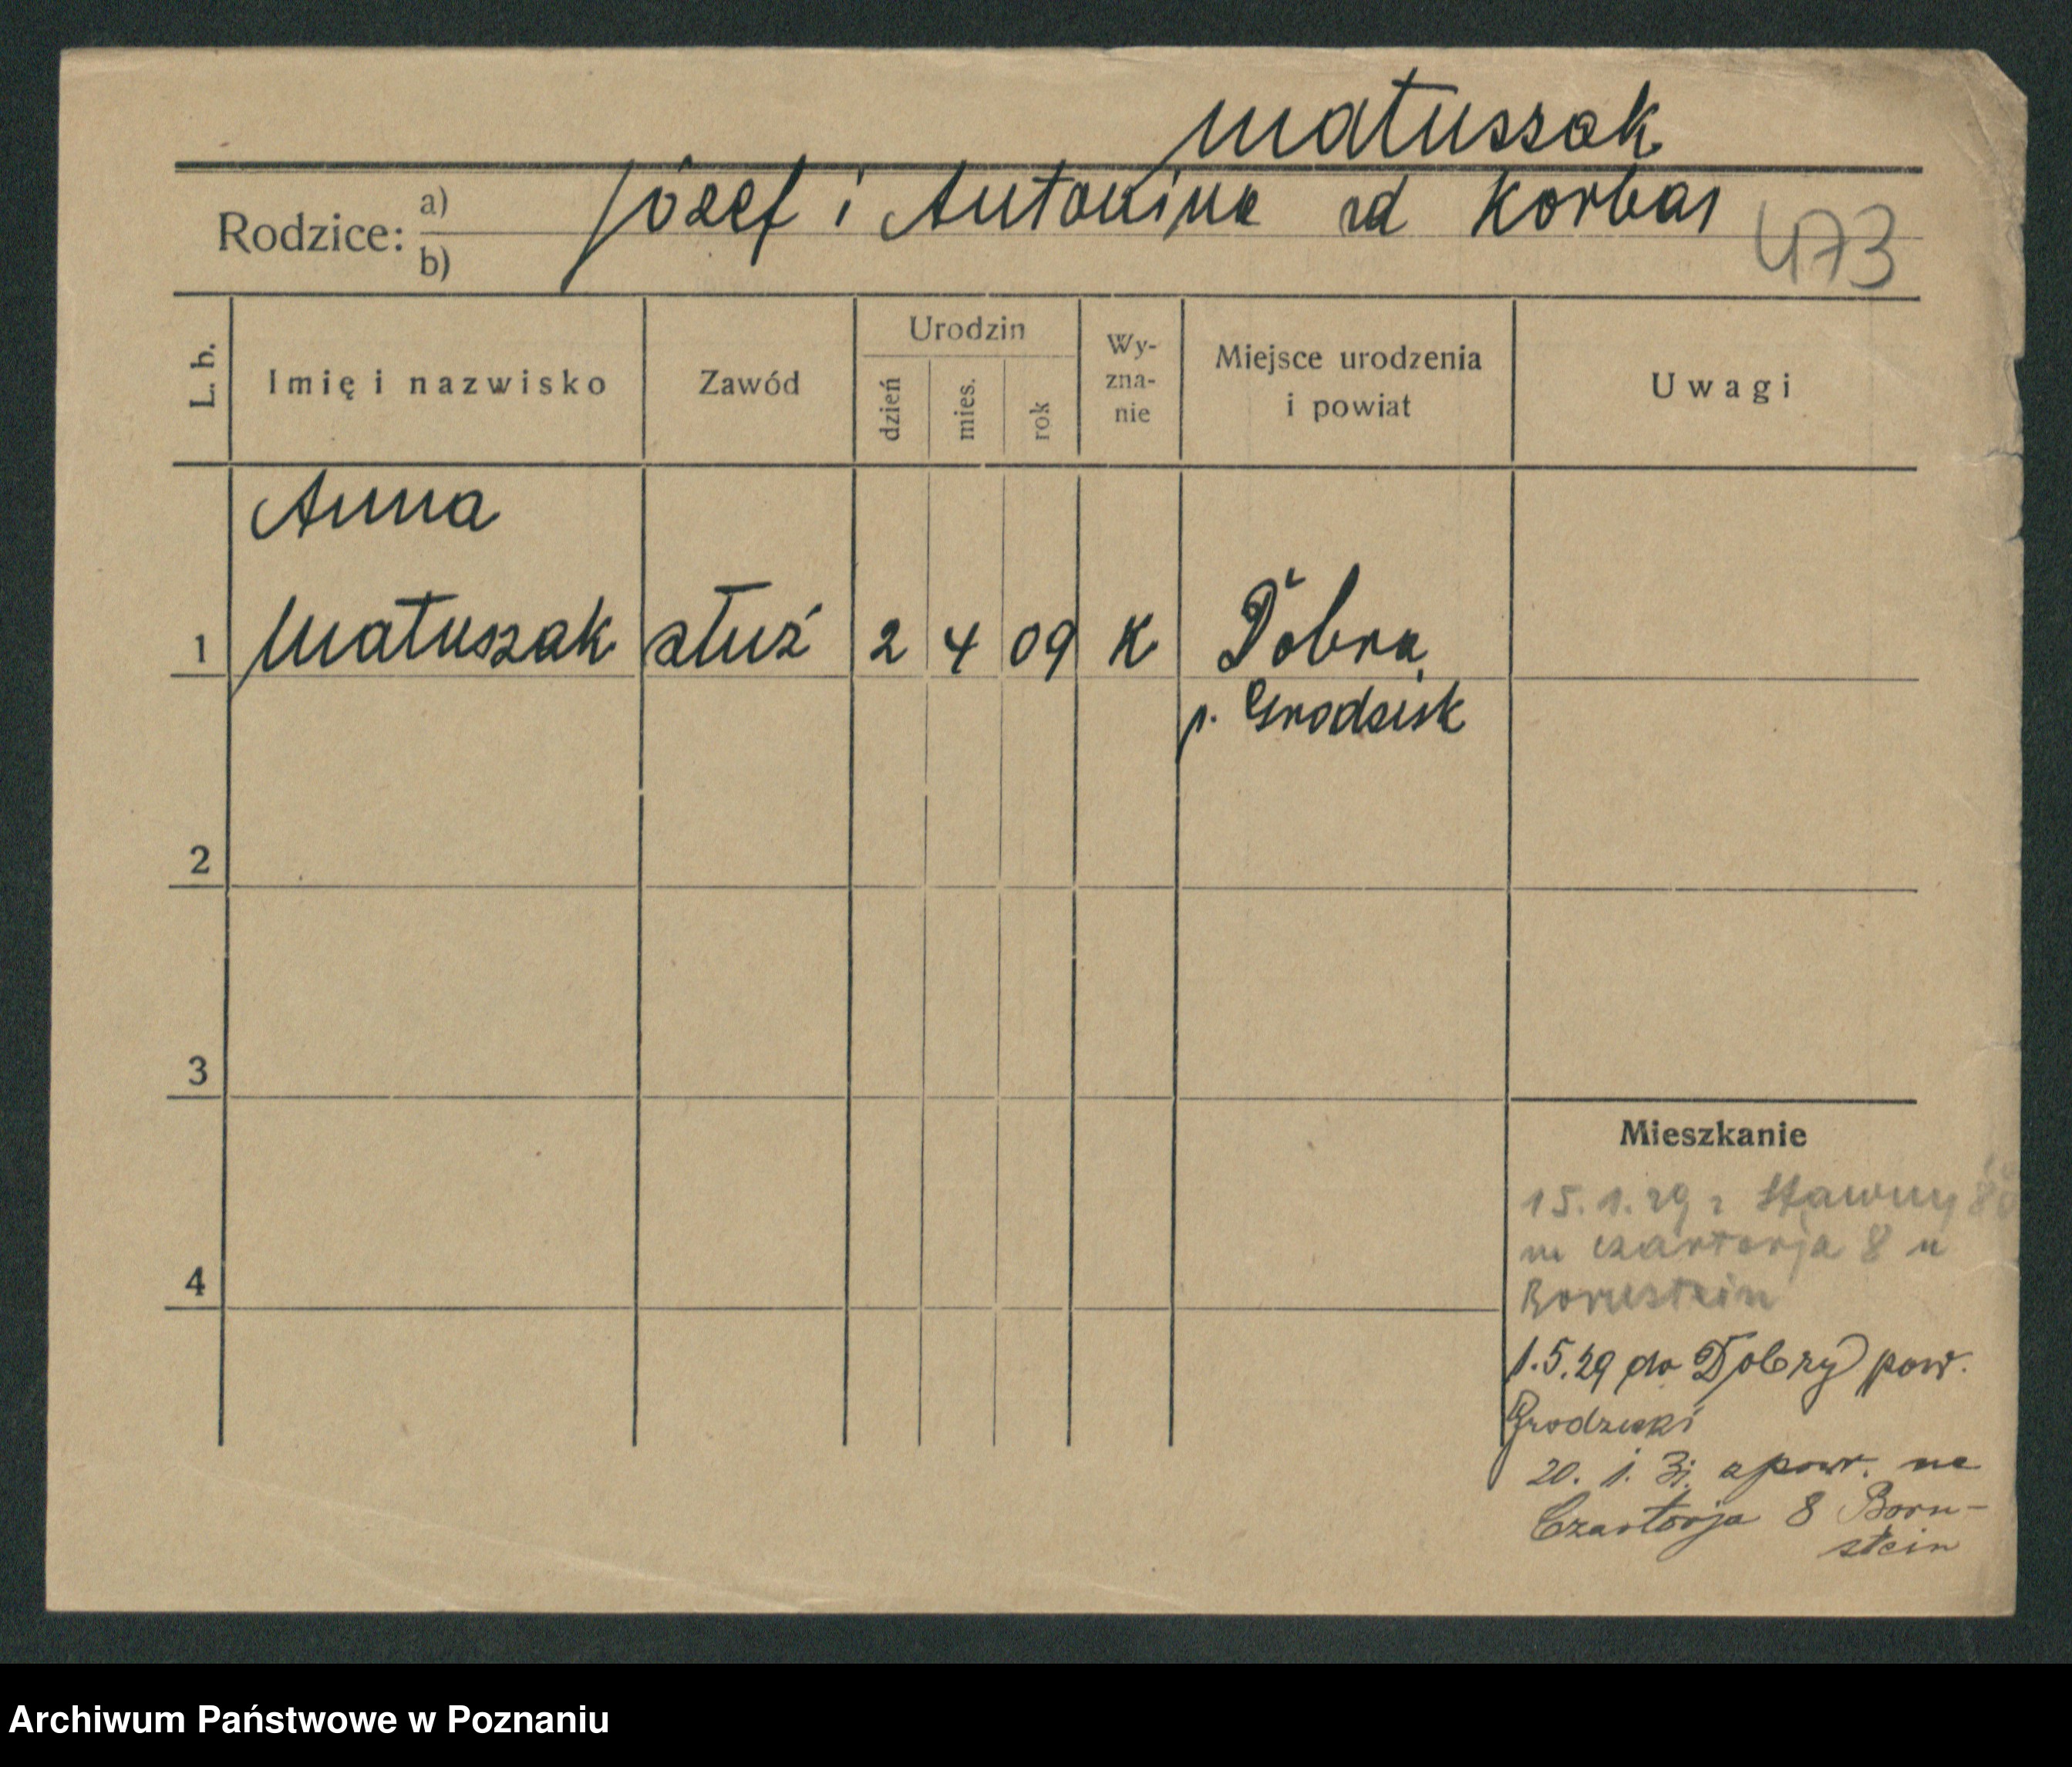 Matuszak
Rodzice: a) Józef i Antonina zd Korbas
b)
473
L. b.
Imię i nazwisko
Zawód
Urodzin
dzień
mies.
rok
Wy-
zna-
nie
Miejsce urodzenia
i powiat
Uwagi
Anna
1 Matuszak służ 2 4 09 K Dobra
p. Grodzisk
2
3
4
Mieszkanie
15.1.29 z Stawny
na Czartorja 8 u
Bornstein
1.5.29 do Dobry pow.
Grodziski
20. 1. 31. zpowr. na
Czartorja 8 Born-
stein
Archiwum Państwowe w Poznaniu